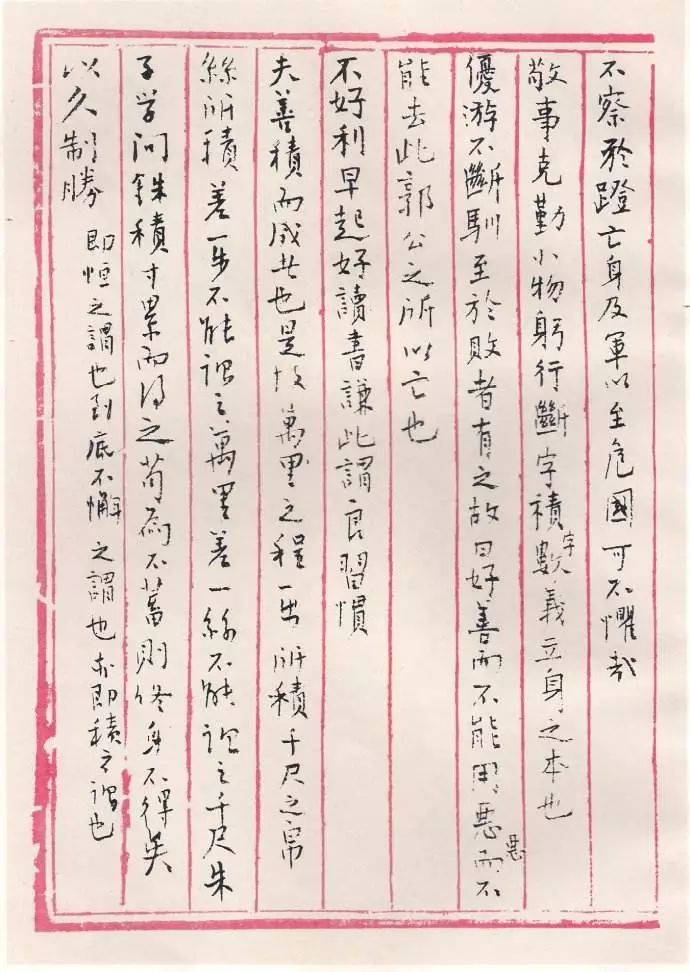 不察於蹬亡身及軍以至危國可不懼哉
敬事克勤小物躬行斷字積字數義立身之本也
優游不斷馴至於敗者有之故曰好善而不能用惡惡而不
能去此郭公之所以亡也
不好利早起好讀書謙此謂良習慣
夫善積而成者也是故萬里之程一步所積千尺之帛一
絲所積差一步不能謂之萬里差一絲不能謂之千尺朱
子学问銖積寸累而得之苟為不蓄則终身不得矣
以久制勝 即恒之謂也到底不懈之謂也亦即積之謂也